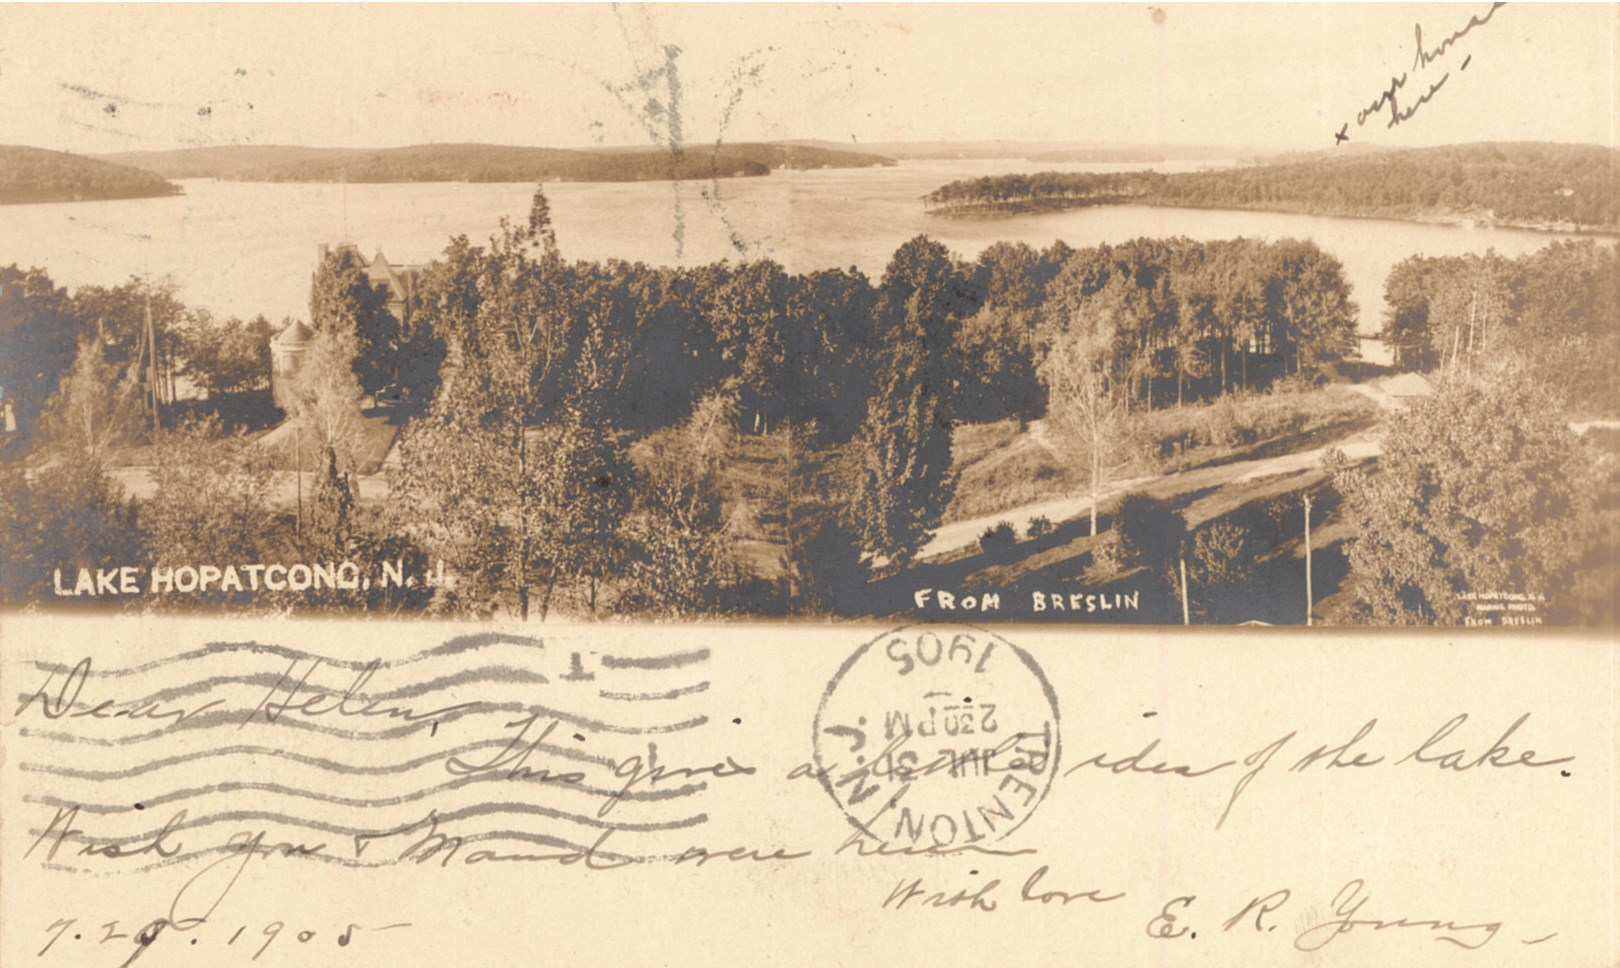 x our house
here -
LAKE HOPATCONG, N. J.
FROM BRESLIN
LAKE HOPATCONG, N. J.
HARRIS PHOTO.
FROM BRESLIN
TRENTON, N.J.
JUL 31
2 30 PM
1905
Dear Helen,
This gives a better idea of the lake.
Wish you & Maud were here
With love
E. R. Young -
7. 29. 1905 -